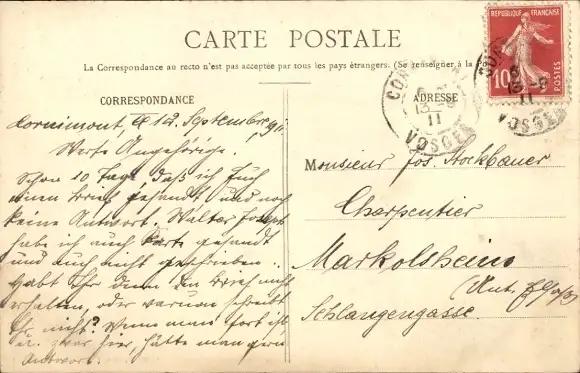 CARTE POSTALE
La Correspondance au recto n'est pas acceptée par tous les pays étrangers. (Se renseigner à la
CORRESPONDANCE
ADRESSE
RÉPUBLIQUE FRANÇAISE
10
POSTES
13-9
11
VOSGES
13-9
11
VOSGES
Cornimont, 12. September, 911
Werte Angehörige.
Schon 10 Tage, daß ich Euch
einen Brief gesandt und noch
keine Antwort. Walter Joseph
habe ich auch Karte gesandt
und auch nicht geschrieben.
Habt Ihr denn den Brief nicht
erhalten, oder warum schreibt
Ihr nicht? Wenn man fort ist
u. zwar hier, hätte man gern
Antwort.
Monsieur Jos. Stockbauer
Charpentier
Markolsheim
Schlangengasse.